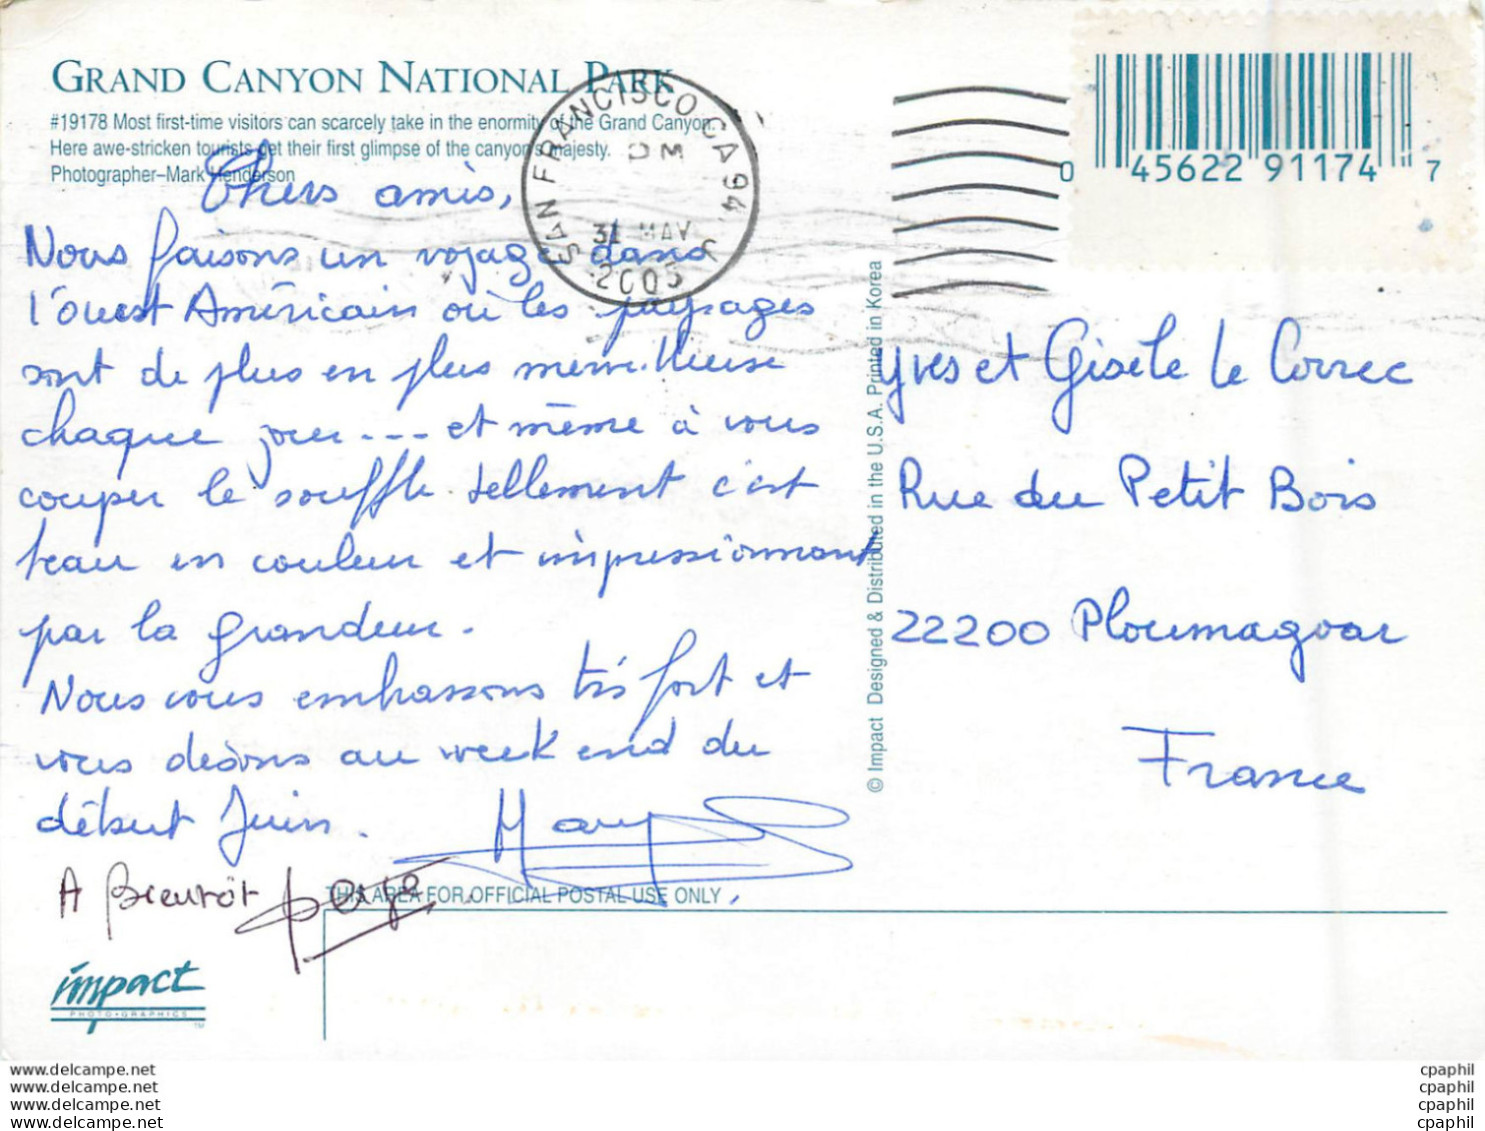 GRAND CANYON NATIONAL PARK
#19178 Most first-time visitors can scarcely take in the enormity of the Grand Canyon.
Here awe-stricken tourists get their first glimpse of the canyon's majesty.
Photographer–Mark Henderson
SAN FRANCISCO CA 94
31 MAY
2005
0 45622 91174 7
Chers amis,
Nous faisons un voyage dans
l'ouest Américain où les paysages
sont de plus en plus merveilleuse
chaque jour... et même à vous
couper le souffle tellement c'est
beau en couleur et impressionnant
par la grandeur.
Nous vous embrassons très fort et
vous disons au week end du
début Juin.
A Bientôt
Yves et Gisèle Le Correc
Rue du Petit Bois
22200 Ploumagoar
France
© Impact Designed & Distributed in the U.S.A. Printed in Korea
THIS AREA FOR OFFICIAL POSTAL USE ONLY
impact
PHOTO•GRAPHICS
™
www.delcampe.net
www.delcampe.net
www.delcampe.net
www.delcampe.net
cpaphil
cpaphil
cpaphil
cpaphil